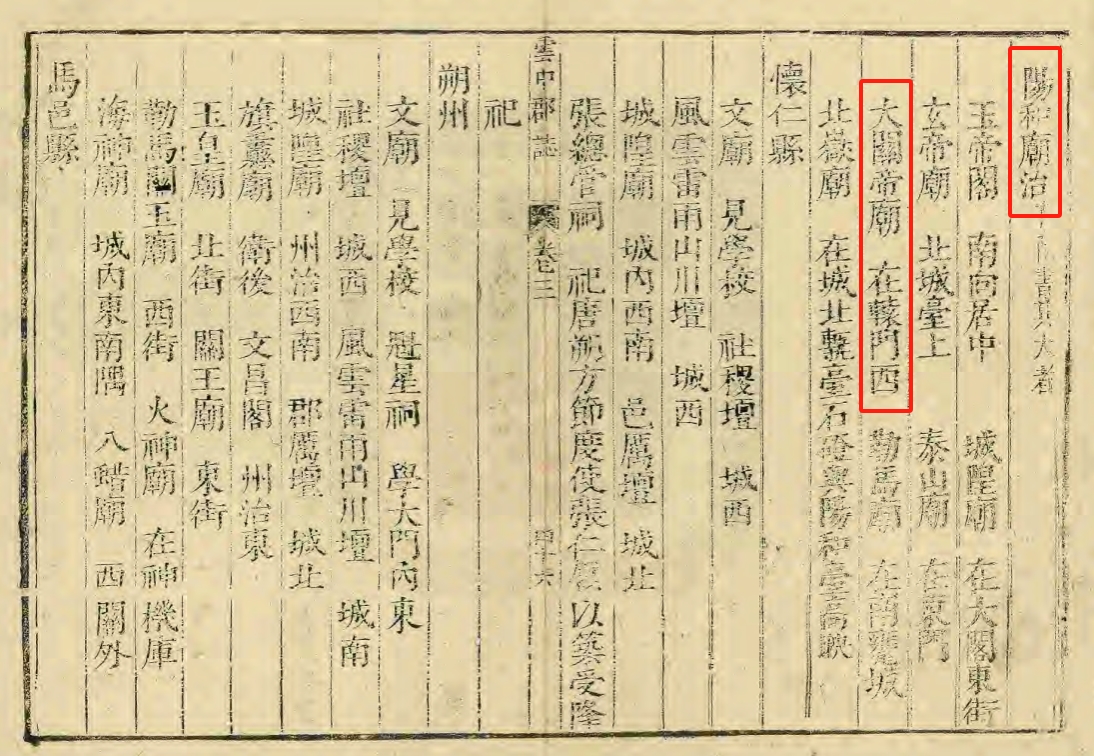 陽和廟治
書其大者
玉帝閣 南向居中 城隍廟 在大閣東街
玄帝廟 北城臺上 泰山廟 在東門
大關帝廟 在轅門西 勒馬廟 在南甕城
北嶽廟 在城北 臺石 與陽和臺高
懷仁縣
文廟 見學校 社稷壇 城西
風雲雷雨山川壇 城西
城隍廟 城內西南 邑厲壇 城北
張總管祠 祀唐朔方節度使張仁愿以築受降
雲中郡誌 卷之三 四十六
祀
朔州
文廟 見學校 魁星祠 學大門內東
社稷壇 城西 風雲雷雨山川壇 城南
城隍廟 州治西南 郡厲壇 城北
旗纛廟 衛後 文昌閣 州治東
玉皇廟 北街 關王廟 東街
勒馬關王廟 西街 火神廟 在神機庫
海神廟 城內東南隅 八蜡廟 西關外
馬邑縣